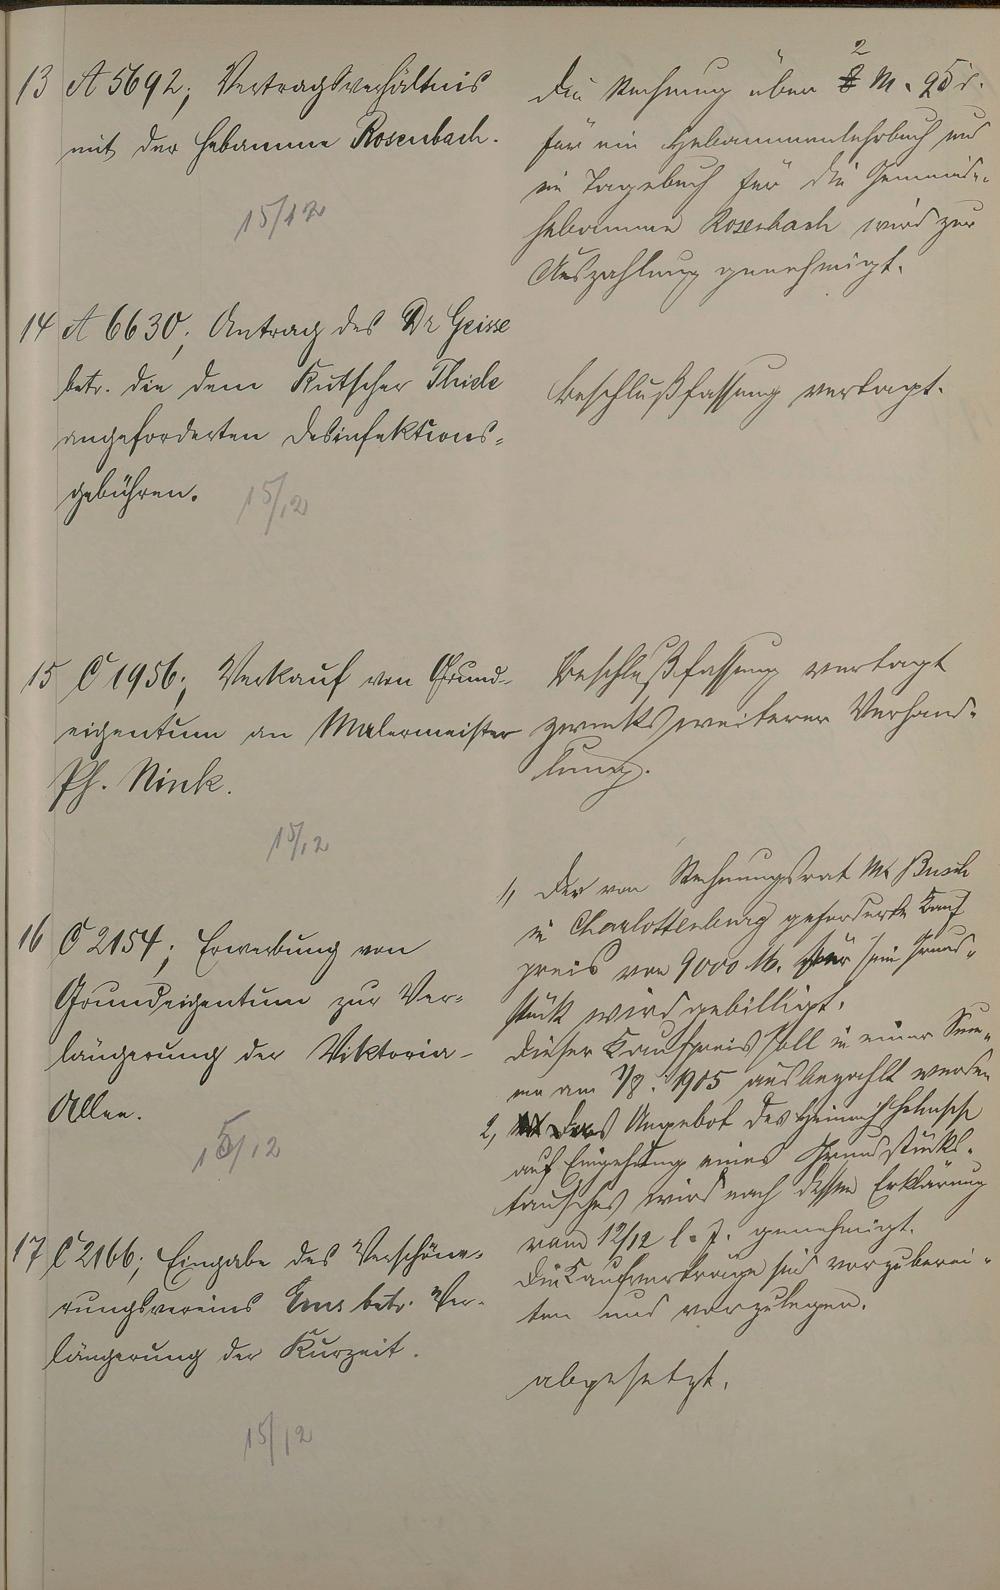 13 A 5692; Vertragsverhältnis
mit der Hebamme Rosenbach.
15/12
Die Rechnung über 2 M. 95 d.
für ein Hebammenlehrbuch und
ein Tagebuch für die Gemeinde-
hebamme Rosenbach wird zur
Auszahlung genehmigt.
14 A 6630; Antrag des Dr Geisse
betr. die dem Kutscher Thiele
angeforderten Desinfektions-
gebühren.
15/12
Beschlußfassung vertagt.
15 C 1956; Verkauf von Grund-
eigentum an Malermeister
Ph. Nink.
15/12
Beschlußfassung vertagt
zwecks weiterer Verhand-
lung.
16 C 2154; Erwerbung von
Grundeigentum zur Ver-
längerung der Viktoria-
Allee.
15/12
1, Der von Rechnungsrat Busch
in Charlottenburg geforderte Kauf
preis von 9000 M. für sein Grund-
stück wird gebilligt.
Dieser Kaufpreis soll in einer Sum-
me am 1/8. 1905 ausbezahlt werden
2, Das Angebot des Heinrich
auf Eingehung eines Grundstücks-
tausches wird nach dessen Erklärung
vom 12/12 l. J. genehmigt.
Die Kaufverträge sind vorzuberei-
ten und vorzulegen.
17 C 2166; Eingabe des Verschöne-
rungsvereins Ems betr. Ver-
längerung der Kurzeit.
15/12
abgesetzt.